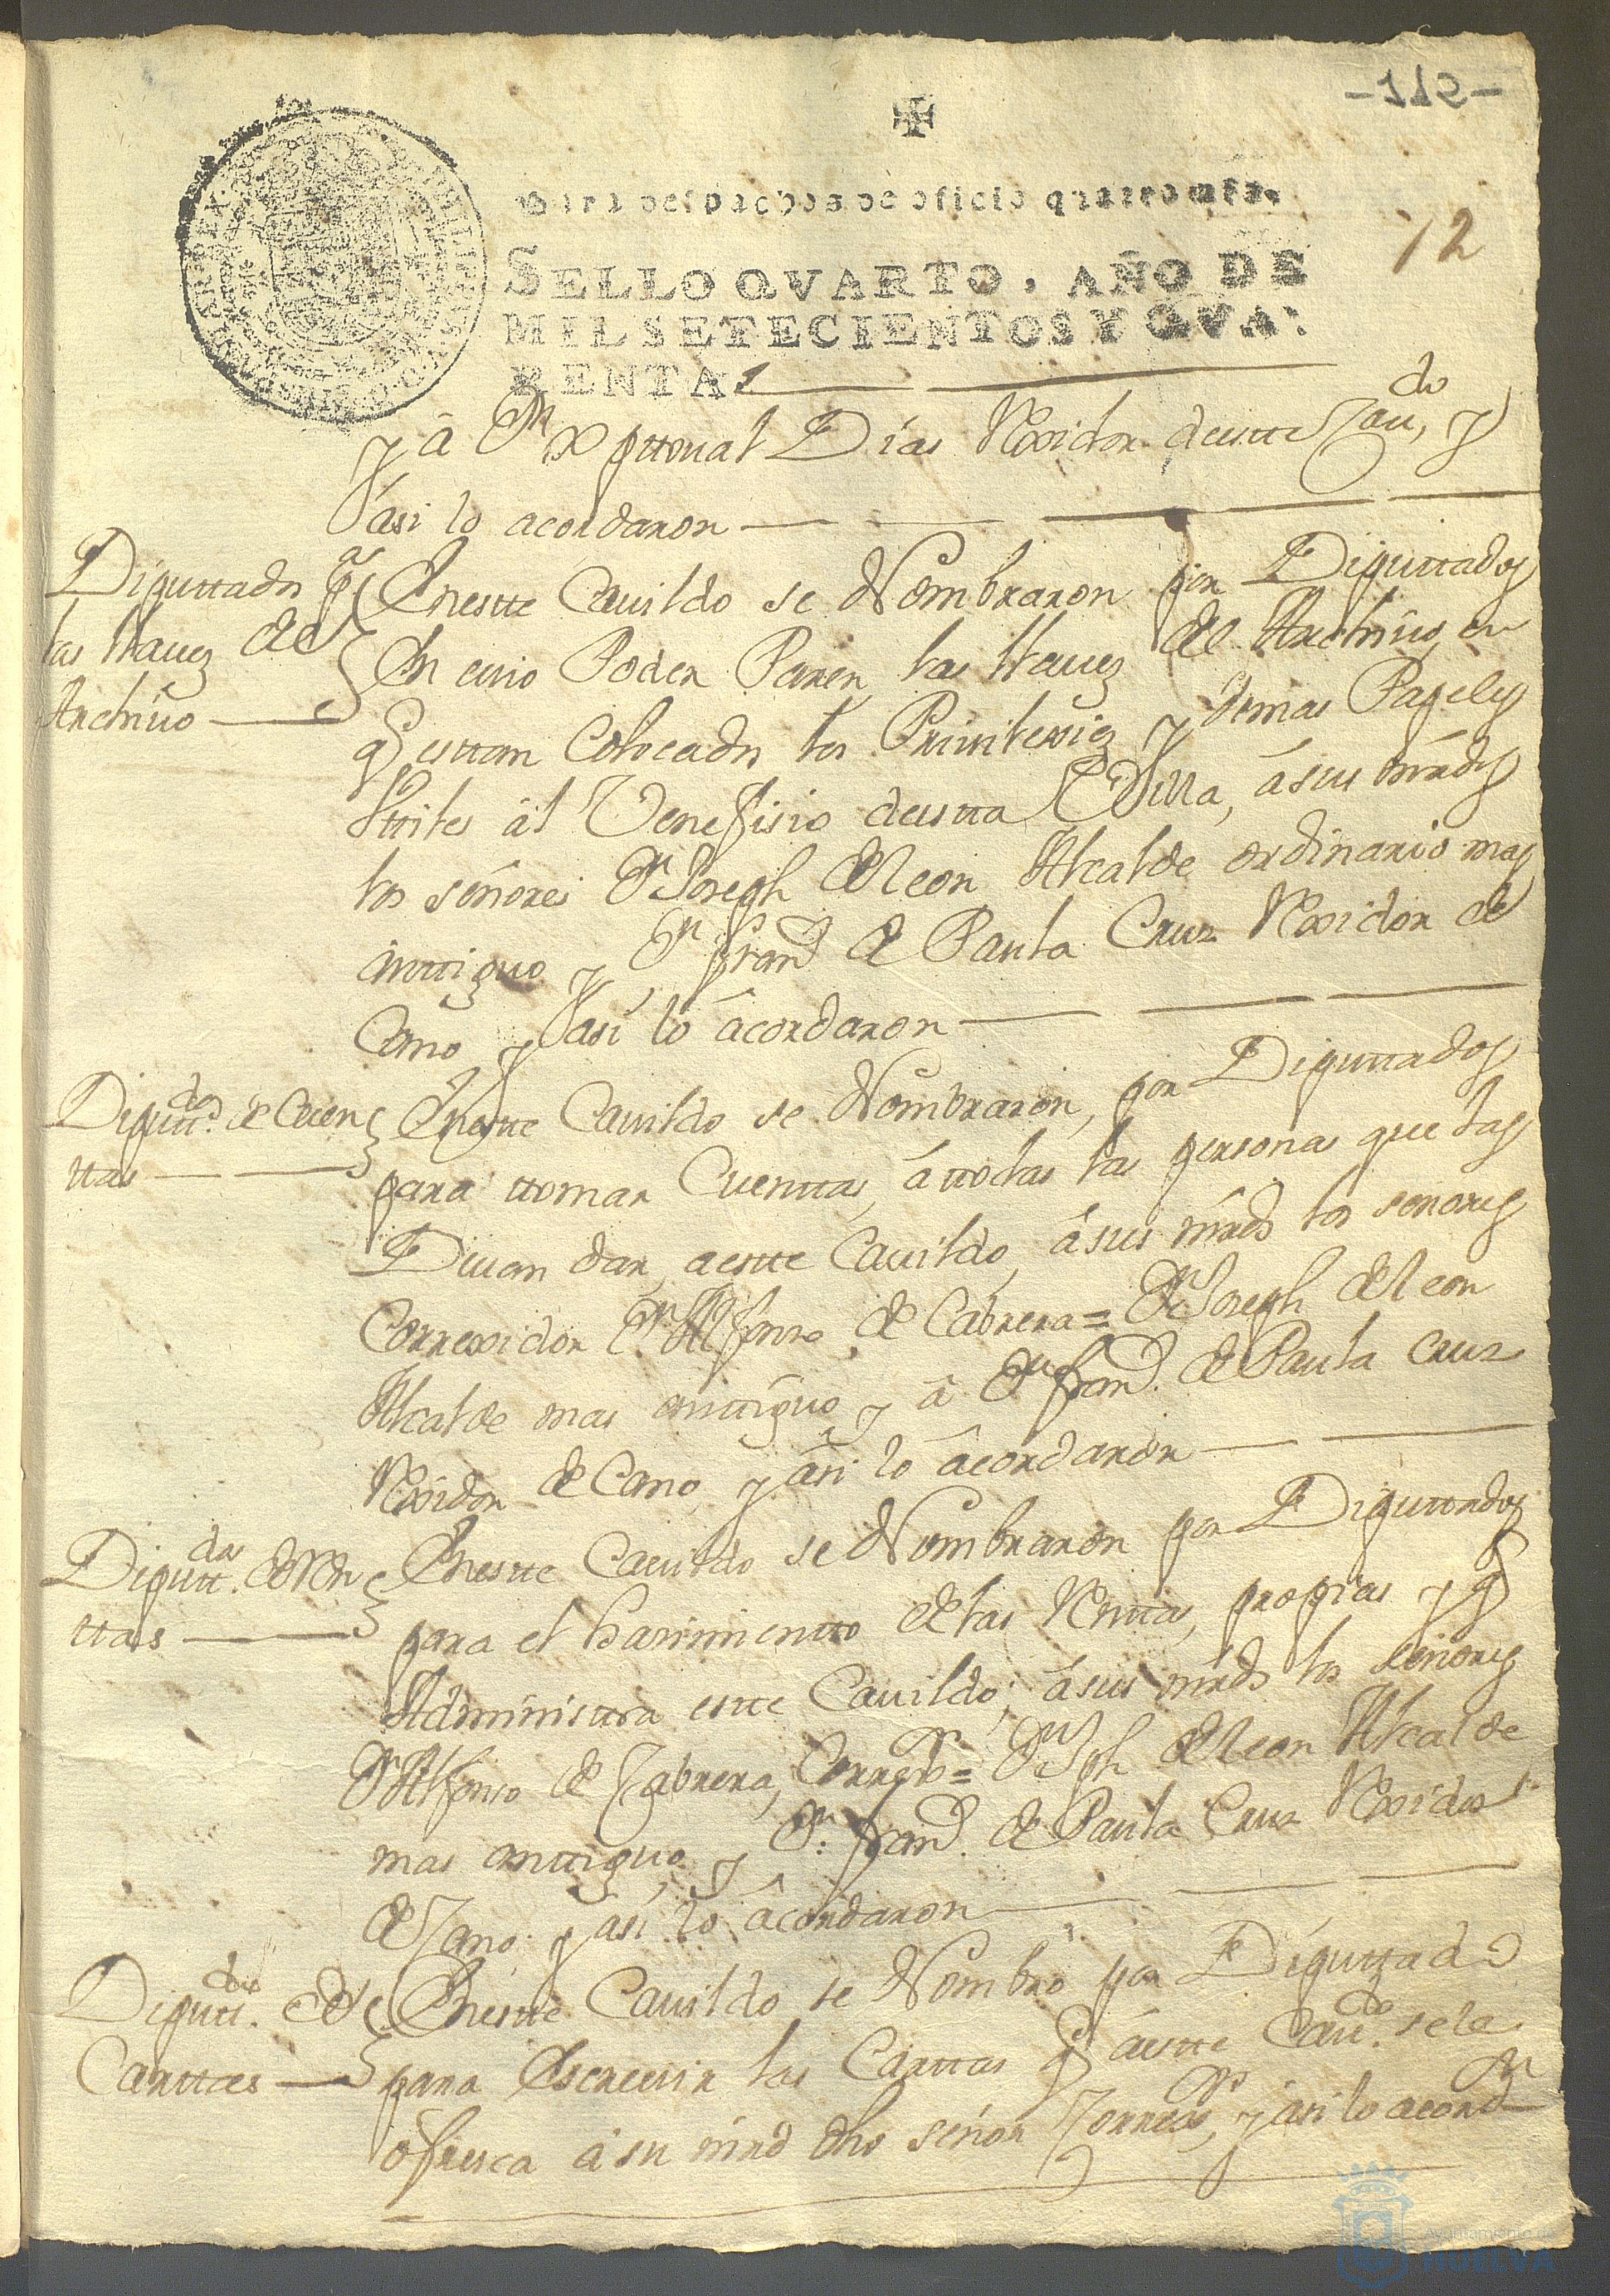 -112-
Para despachos de oficio quatro mrs.
12
SELLO QVARTO, AÑO DE
MIL SETECIENTOS Y QVA-
RENTA.
y â Dn Xpttoual Dias Rexidor deestte Caudo, y
asi lo acordaron
Diputtados pa
las llauez del
Archiuo
Enestte Cauildo se Nombraron por Diputtados
En cuio Poder Paren las llauez del Archiuo, en
q esttan Colocados los Priuilexioz y demas Papeles
Vttiles âl Venefisio deestta Villa, ásus mrds
los señores Dn Joseph de Leon Alcalde ordinario mas
anttiguo y Dn Frano de Paula Cruz Rexidor de
Cano y asi lo âcordaron
Diputtdos de Cuen
ttas
Enestte Cauildo se Nombraron, por Diputtados
para ttomar Cuenttas, áttodas las personas que las
Deuan dar, aestte Cauildo, ásus mrds los señores
Correxidor Dn Alfonso de Cabrera = Dn Joseph de Leon
Alcalde mas anttiguo y â Dn Frano. de Paula Cruz
Rexidor de Cano, y asi lo âcordaron
Diputtdos. de Ren
ttas
Enestte Cauildo se Nombraron por Diputtados
para el hasimientto de las Renttas, propias y q
Administtra estte Cauildo, ásus mrds los señores
Dn Alfonso de Cabrera, Corregor = Dn Jph de Leon Alcalde
mas anttiguo y Dn. Frano. de Paula Cruz Rexidor
de Cano y asi lo âcordaron
Diputtdos. de
Carttas
Enestte Cauildo se Nombró por Diputtado
para Escreuir las Carttas q áestte Caudo. sele
ofresca á su mrd dho señor Correxor, y asi lo acordn
Ayuntamiento de
HUELVA